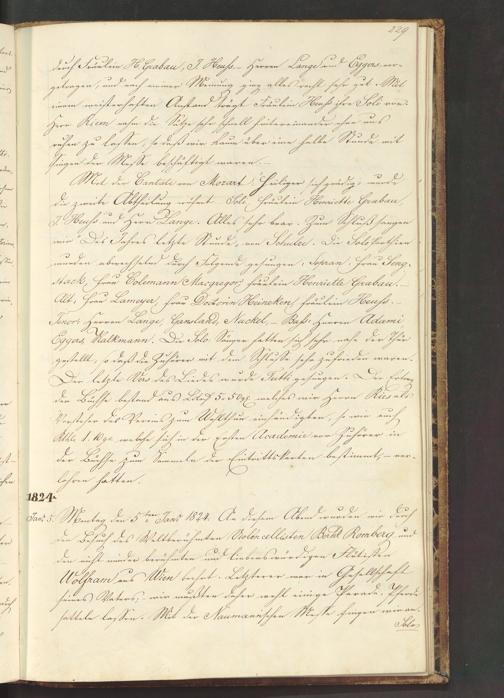 229
durch Fräulein H. Grabau, J. Heuss – Herrn Lange und Eggers vor-
getragen, und nach meiner Meinung ging alles recht sehr gut. Mit
einem meisterhaften Anstand trägt Fräulein Heuss ihre Solo vor.
Herr Riem nahm die Sätze sehr schnell hintereinander ohne uns
ruhen zu lassen, so daß wir kaum über eine halbe Stunde mit
singen der Messe beschäftigt waren. –
Mit der Cantate von Mozart: Heiliger sieh gnädig, wurde
die zweite Abtheilung Soli, Fräulein Henriette Grabau,
J. Heuss und Herr Lange. Alles sehr brav. Zum Schluß sangen
wir Des Jahres letzte Stunde, von Schulz. Die Solo
wurden abwechselnd durch Folgende gesungen. Sopran: Frau Seng-
stack, Frau Colemann Macgregor, Fräulein Henriette Grabau. –
Alt, Frau Lameyer, Frau Doctorin Heineken, Fräulein Heuss. –
Tenor: Herren Lange, Ganslandt, Nackel, – Baß: Herren Adami
Eggers, Walkmann. Die Solo Sänger hatten sich sehr nahe der Thür
gestellt, so daß die Zuhörer mit dem Schlusse sehr zufrieden waren.
Der letzte Vers des Liedes wurde Tutti gesungen. Der
der Büchse bestand aus welches wir Herrn Ries als
Vorsteher des Vereins zum Wohlthun einhändigten, so wie auch
welche sich in der Academie von Zuhörer in
der Büchse zum Sammeln der Eintrittskarten bestimmt, – ver-
lohren hatten.
1824.
Janr 5. Montag den 5ten Janr 1824. An diesem Abend wurden wir durch
den Besuch des Weltberühmten Violoncellisten Bernht Romberg und
des nicht minder berühmten und liebenswürdigen
Wolfram aus Wien beehrt. Letzterer war in Gesellschaft
seines Vaters, wir mußten daher wohl einige Parade Pferde
satteln lassen. Mit der Naumannschen Messe fingen wir an.
Solo